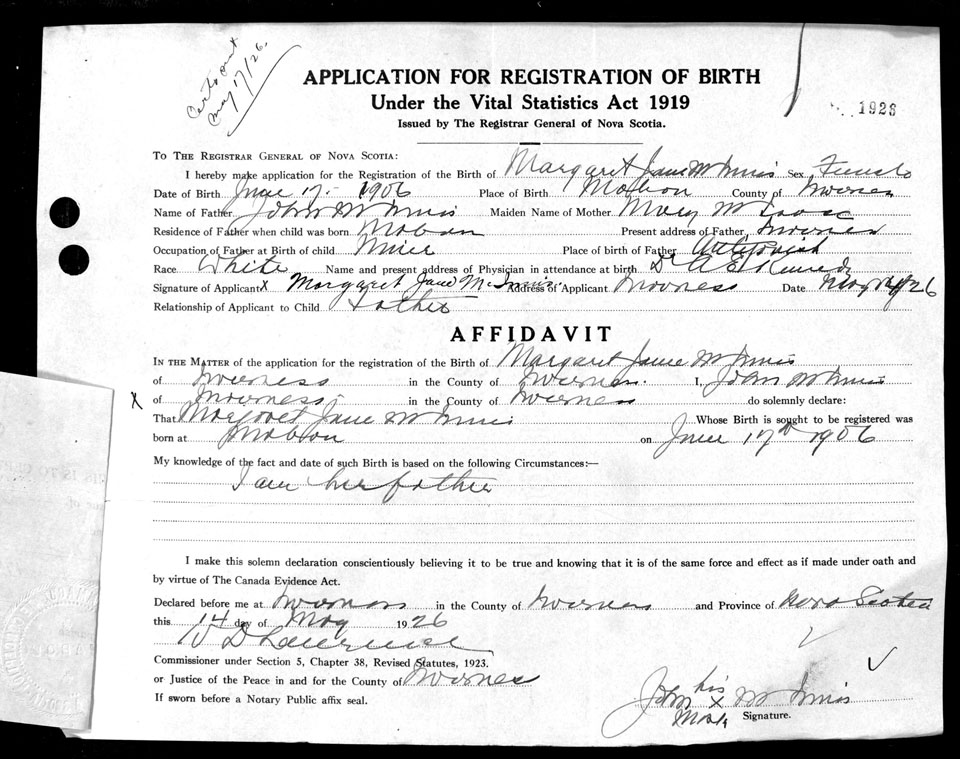 Certs out
May 17/26.
APPLICATION FOR REGISTRATION OF BIRTH
Under the Vital Statistics Act 1919
1926
Issued by The Registrar General of Nova Scotia.
TO THE REGISTRAR GENERAL OF NOVA SCOTIA:
I hereby make application for the Registration of the Birth of Margaret Jane McInnis Sex Female
Date of Birth June 17. 1906 Place of Birth Mabou County of Inverness
Name of Father John McInnis Maiden Name of Mother Mary McIsaac
Residence of Father when child was born Mabou Present address of Father Inverness
Occupation of Father at Birth of child Miner Place of birth of Father Antigonish
Race White Name and present address of Physician in attendance at birth Dr A E Kennedy
Signature of Applicant X Margaret Jane McInnis Address of Applicant Inverness Date May 14/26
Relationship of Applicant to Child Father
AFFIDAVIT
IN THE MATTER of the application for the registration of the Birth of Margaret Jane McInnis
of Inverness in the County of Inverness. I, John McInnis
X of Inverness in the County of Inverness do solemnly declare:
That Margaret Jane McInnis Whose Birth is sought to be registered was
born at Mabou on June 17th 1906
My knowledge of the fact and date of such Birth is based on the following Circumstances:—
I am her father
I make this solemn declaration conscientiously believing it to be true and knowing that it is of the same force and effect as if made under oath and
by virtue of The Canada Evidence Act.
Declared before me at Inverness in the County of Inverness and Province of Nova Scotia
this 14 day of May 1926
D Lawrence
Commissioner under Section 5, Chapter 38, Revised Statutes, 1923.
or Justice of the Peace in and for the County of Inverness
If sworn before a Notary Public affix seal.
John his X McInnis
Mark
Signature.